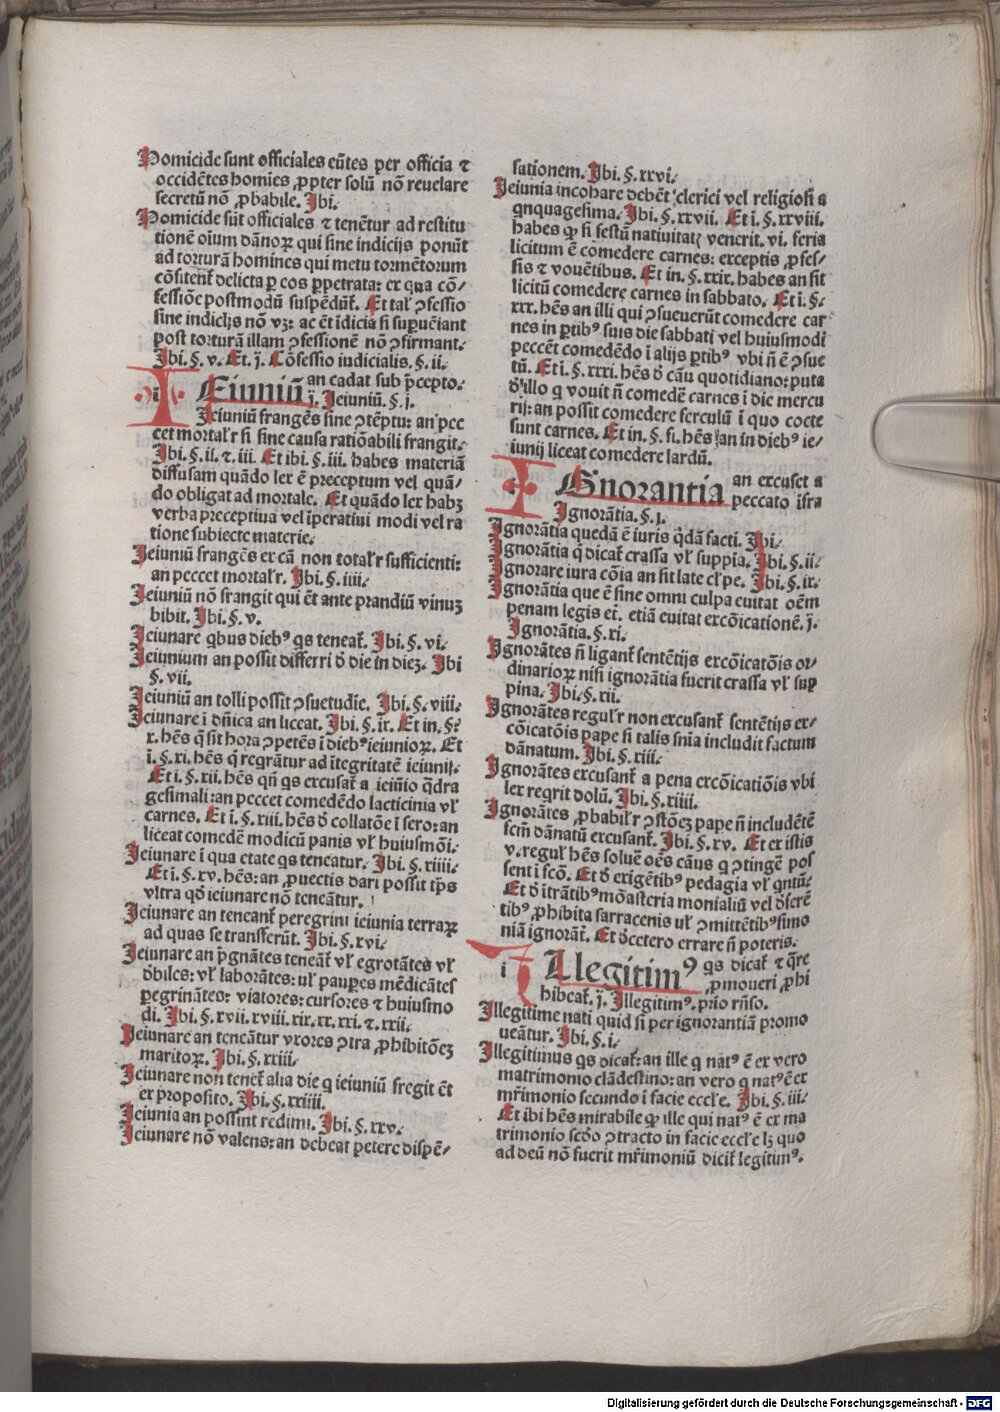 Homicide sunt officiales eu̅tes per officia ⁊
occide̅tes homi̅es ꝓpter solu̅ no̅ reuelare
secretu̅ no̅ ꝓbabile. Ibi.
Homicide su̅t officiales ⁊ tene̅tur ad restitu
tione̅ oium da̅noꝝ qui sine indicijs ponu̅t
ad tortura̅ homines qui metu torme̅torum
co̅fitent̉ delicta ꝑ eos ꝑpetrata: ex qua co̅⸗
fessio̅e postmodu̅ suspe̅du̅t̉. Et tal̉ ꝯfessio
sine indicijs no̅ vꝫ: ac e̅t i̅dicia si suꝑue̅iant
post tortura̅ illam ꝯfessione̅ no̅ ꝯfirmant.
Ibi. §. v. Et. j. Co̅fessio iudicialis. §. ii.
i Eiuniu̅ an cadat sub p̅cepto.
j. Ieiuniu̅. §. j.
Ieiuniu̅ frange̅s sine ꝯte̅ptu: an pec
cet mortal̉r si sine causa ratio̅abili frangit.
Ibi. §. ii. ⁊. iii. Et ibi. §. iii. habes materia̅
diffusam qua̅do lex e̅ preceptum vel qua̅⸗
do obligat ad mortale. Et qua̅do lex habꝫ
verba preceptiua vel i̅peratiui modi vel ra
tione subiecte materie.
Ieiuniu̅ frange̅s ex ca̅ non total̉r sufficienti:
an peccet mortal̉r. Ibi. §. iiii.
Ieiuniu̅ no̅ frangit qui e̅t ante prandiu̅ vinuꝫ
bibit. Ibi. §. v.
Ieiunare qbus dieb⁹ qs teneat̉. Ibi. §. vi.
Ieiunium an possit differri d̉ die in dieꝫ. Ibi
§. vii.
Ieiuniu̅ an tolli possit ꝯsuetudie. Ibi. §. viii.
Ieiunare i̅ dn̅ica an liceat. Ibi. §. ix. Et in. §.
x. he̅s q̅ sit hora ꝯpete̅s i̅ dieb⁹ ieiunioꝝ. Et
i̅. §. xi. he̅s q̅ reqra̅tur ad i̅tegritate̅ ieiunij.
Et i̅. §. xii. he̅s qn̅ qs excusat̉ a ieiu̅io q̅dra
gesimali: an peccet comede̅do lacticinia vl̉
carnes. Et i̅. §. xiii. he̅s d̉ collato̅e i̅ sero: an
liceat comede̅ modicu̅ panis vl̉ huiusmo̅i.
Ieiunare i̅ qua etate qs teneatur. Ibi. §. xiiii.
Et i̅. §. xv. he̅s: an ꝓuectis dari possit tp̅s
vltra qd̉ ieiunare no̅ tenea̅tur.
Ieiunare an teneant̉ peregrini ieiunia terraꝝ
ad quas se transferu̅t. Ibi. §. xvi.
Ieiunare an p̅gna̅tes teneant̉ vl̉ egrota̅tes vl̉
debiles: vl̉ labora̅tes: vl̉ pauꝑes me̅dica̅tes
ꝑegrina̅tes: viatores: cursores ⁊ huiusmo
di. Ibi. §. xvii. xviii. xix. xx. xxi. ⁊. xxii.
Ieiunare an tenea̅tur vxores ꝯtra ꝓhibito̅eꝫ
maritoꝝ. Ibi. §. xxiii.
Ieiunare non tenet̉ alia die q ieiuniu̅ fregit e̅t
ex proposito. Ibi. §. xxiiii.
Ieiunia an possint redimi. Ibi. §. xxv.
Ieiunare no̅ valens: an debeat petere dispe̅⸗
sationem. Ibi. §. xxvi.
Ieiunia incohare debe̅t clerici vel religiosi a
qnquagesima. Ibi. §. xxvii. Et i̅. §. xxviii.
habes ꝙ si festu̅ natiuitatꝭ venerit. vi. feria
licitum e̅ comedere carnes: exceptis ꝓfes⸗
sis ⁊ voue̅tibus. Et in. §. xxix. habes an sit
licitu̅ comedere carnes in sabbato. Et i̅. §.
xxx. he̅s an illi qui ꝯsueueru̅t comedere car
nes in ꝑtib⁹ suis die sabbati vel huiusmodi
pecce̅t comede̅do i̅ alijs ꝑtib⁹ vbi n̅ e̅ ꝯsue
tu̅. Et i̅. §. xxxi. he̅s d̉ ca̅u quotidiano: puta
d̉ illo q vouit n̅ comede̅ carnes i̅ die mercu
rij: an possit comedere ferculu̅ i̅ quo cocte
sunt carnes. Et in. §. fi. he̅s an in dieb⁹ ie⸗
iunij liceat comedere lardu̅.
Gnorantia an excuset a
peccato i̅fra
Ignora̅tia. §. j.
Ignora̅tia queda̅ e̅ iuris q̅da̅ facti. Ibi.
Ignora̅tia q̅ dicat̉ crassa vl̉ suppia. Ibi. §. ii.
Ignorare iura co̅ia an sit late cl̉pe. Ibi. §. ix.
Ignora̅tia que e̅ sine omni culpa euitat oe̅m
penam legis ei. etia̅ euitat exco̅icatione̅. j.
Ignora̅tia. §. xi.
Ignora̅tes n̅ ligant̉ sente̅tijs exco̅icato̅is or⸗
dinarioꝝ nisi ignora̅tia fuerit crassa vl̉ sup
pina. Ibi. §. xii.
Ignora̅tes regul̉r non excusant̉ sente̅tijs ex⸗
co̅icato̅is pape si talis sn̅ia includit factum
da̅natum. Ibi. §. xiii.
Ignora̅tes excusant̉ a pena exco̅icatio̅is vbi
lex reqrit dolu̅. Ibi. §. xiiii.
Ignora̅tes ꝓbabil̉r ꝯsto̅eꝫ pape n̅ include̅te̅
fcm̅ da̅natu̅ excusant̉. Ibi. §. xv. Et ex istis
v. regul̉ he̅s solue̅ oe̅s ca̅us q ꝯtinge̅ pos
sent i̅ sco̅. Et d̉ exige̅tib⁹ pedagia vl̉ qntu̅.
Et d̉ i̅tra̅tib⁹ mo̅asteria monialiu̅ vel d̉fere̅
tib⁹ ꝓhibita sarracenis vl̉ ꝯmitte̅tib⁹ simo
nia̅ ignora̅t̉. Et d̉cetero errare n̅ poteris.
i Llegitim⁹ qs dicat̉ ⁊ q̅re
ꝓmoueri ꝓhi
hibeat̉. j. Illegitim⁹. pri̅o rn̅so.
Illegitime nati quid si per ignorantia̅ promo
uea̅tur. Ibi. §. i.
Illegitimus qs dicat̉: an ille q nat⁹ e̅ ex vero
matrimonio cla̅destino: an vero q nat⁹ e̅ ex
mr̅imonio secundo i̅ facie eccl̉e. Ibi. §. iii.
Et ibi he̅s mirabile ꝙ ille qui nat⁹ e̅ ex ma
trimonio scd̉o ꝯtracto in facie eccl̉e lꝫ quo
ad deu̅ no̅ fuerit mr̅imoniu̅ dicit̉ legitim⁹.
Digitalisierung gefördert durch die Deutsche Forschungsgemeinschaft - DFG